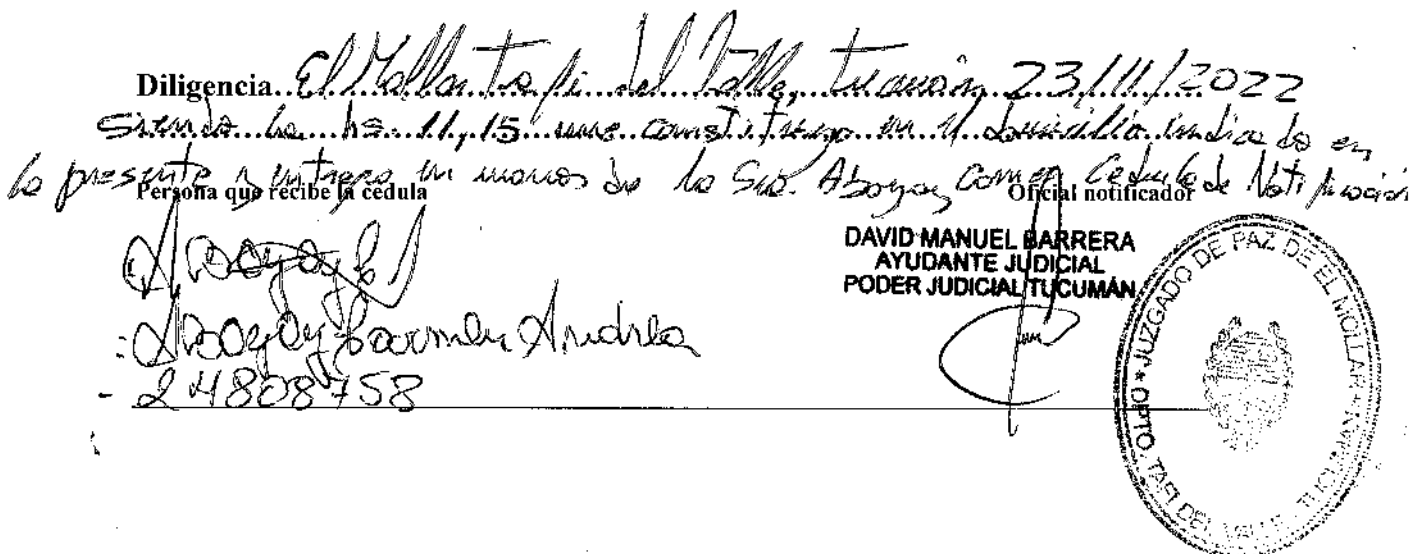 Diligencia. El Mollar Tafi del Valle, Tucumán 23/11/2022
Siendo la hs 11,15 me constituyo en el domicilio indicado en
la presente y entrego en manos de la Sra. Abogay, Carmen Cedula de Notificación
Persona que recibe la cedula
Oficial notificador
DAVID MANUEL BARRERA
AYUDANTE JUDICIAL
PODER JUDICIAL TUCUMÁN
Carmen Andrea
- 24808758
JUZGADO DE PAZ DE EL MOLLAR * DPTO. TAFI DEL VALLE - TUCUMAN